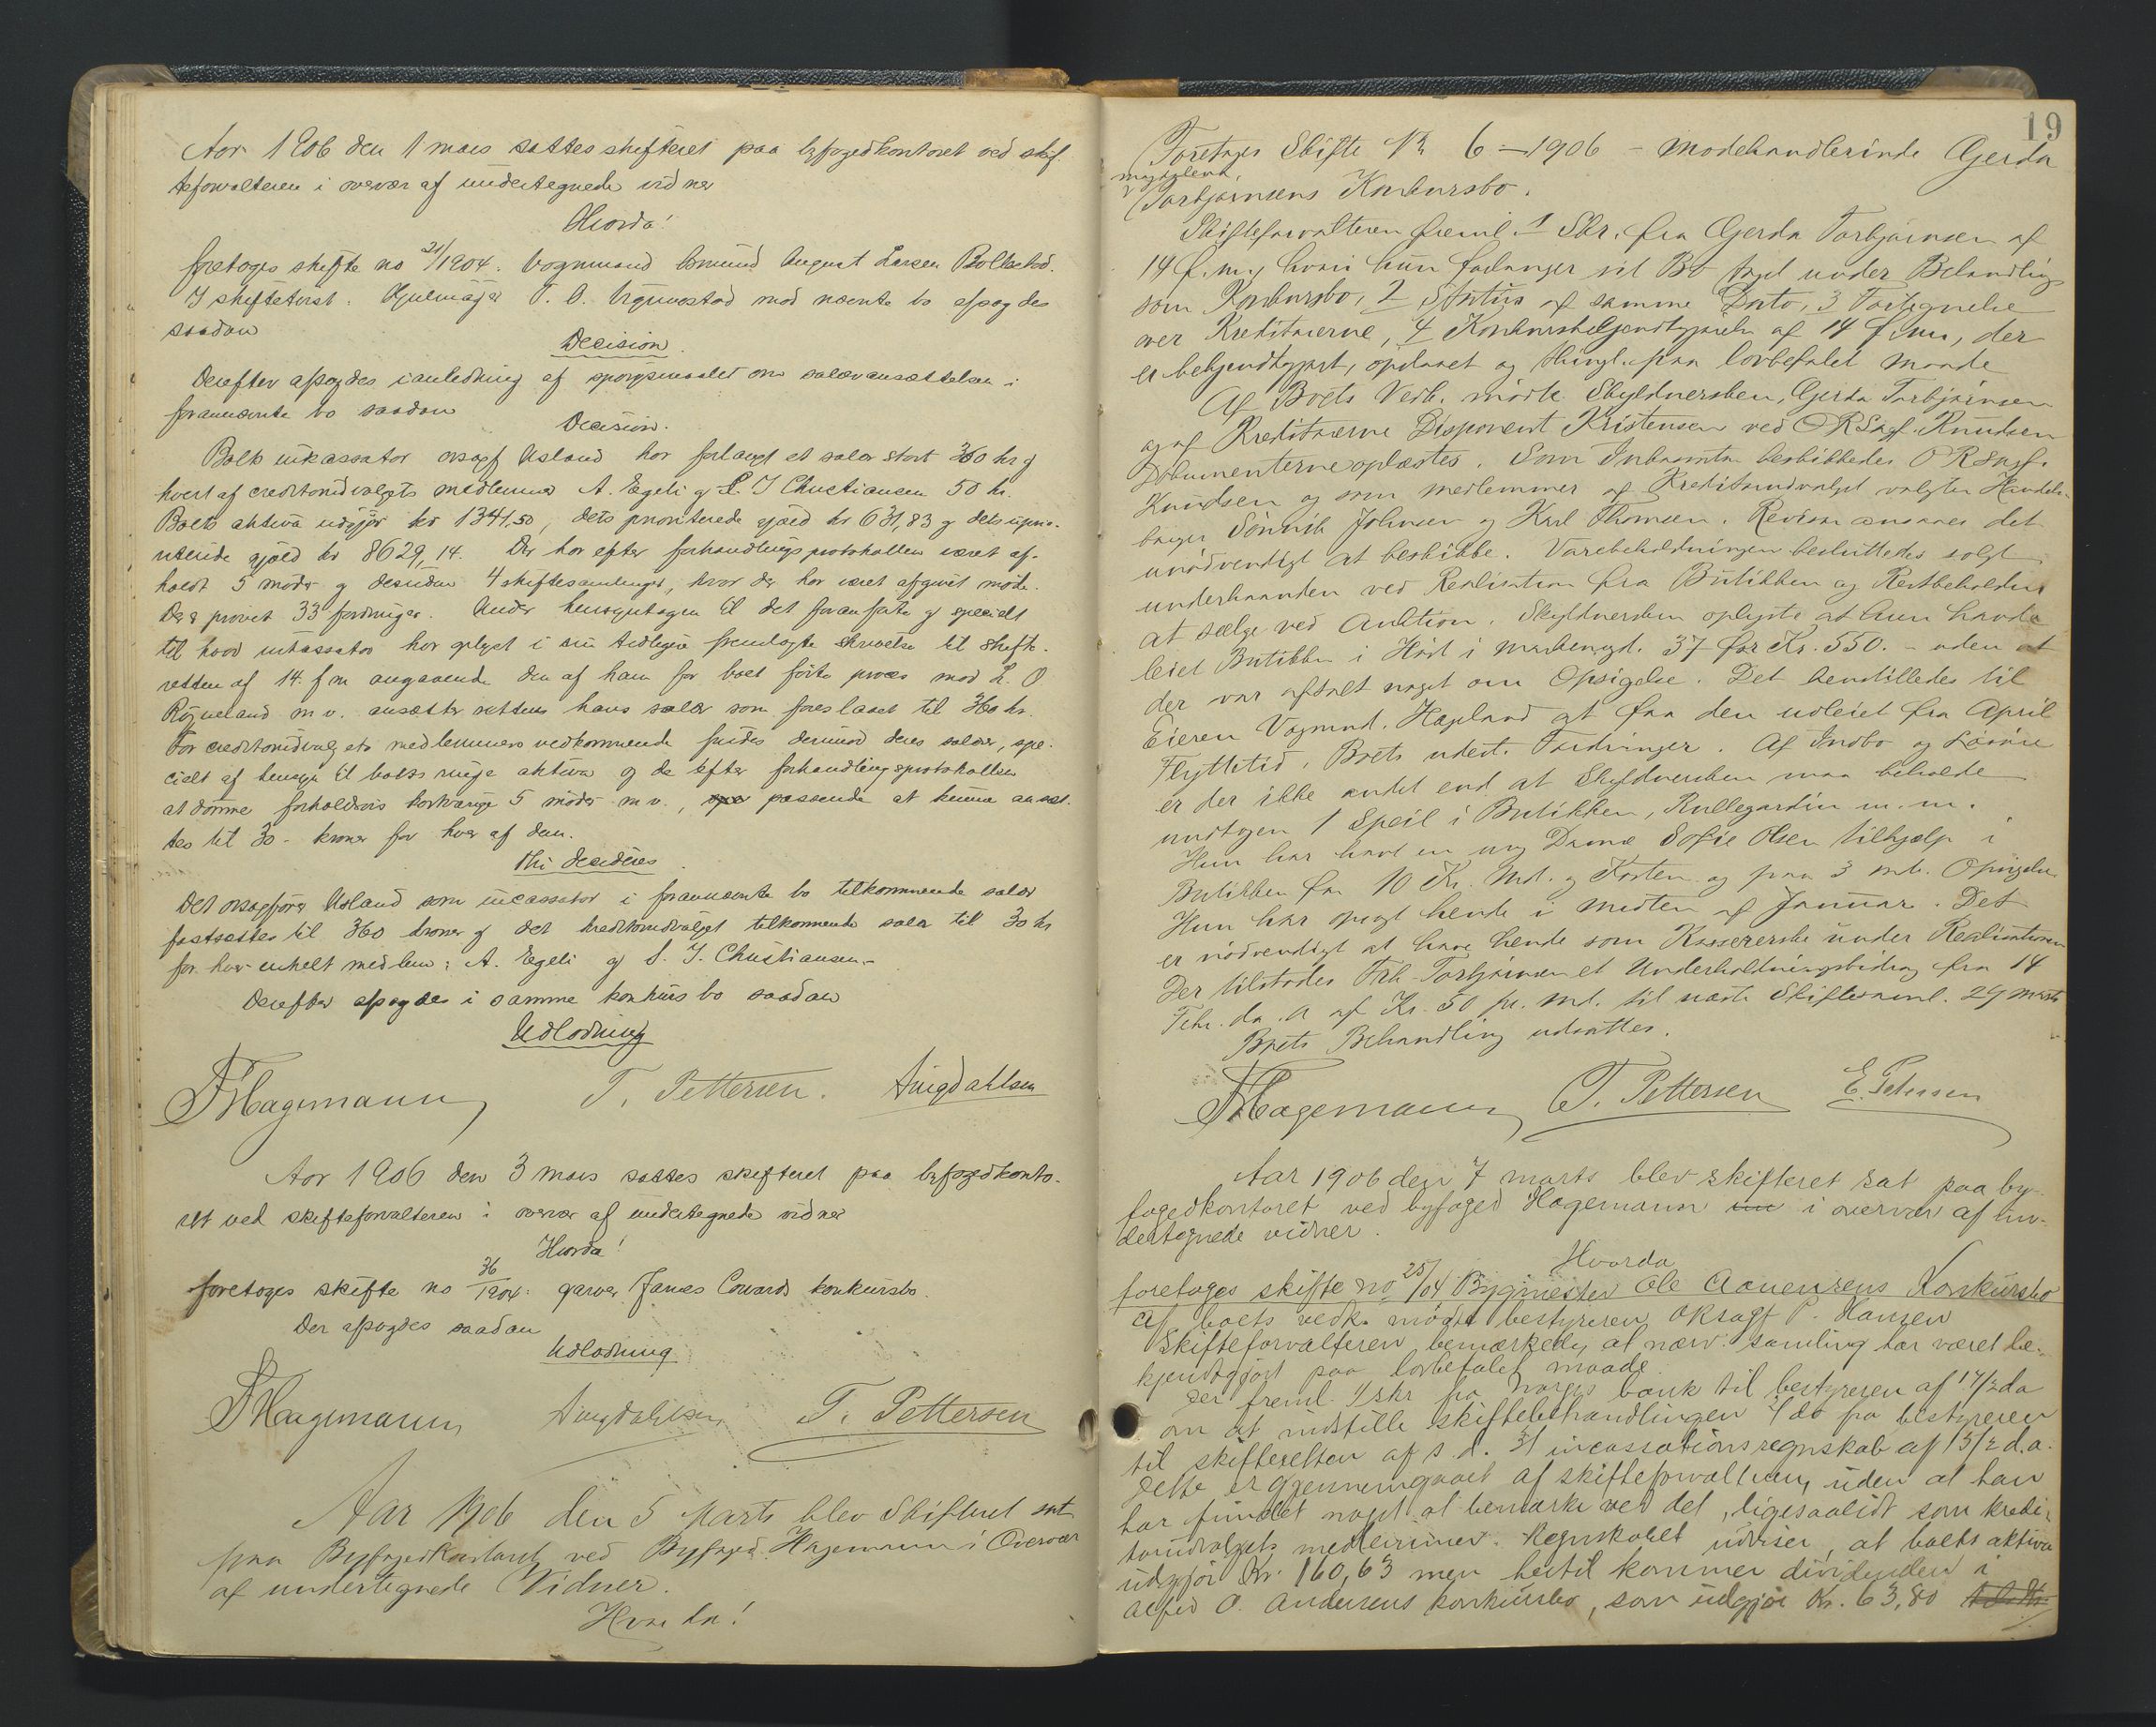 Aar 1906 den 1 mars sattes skifteret paa byfogedkontoret ved skif-
teforvalteren i overvær af undertegnede vidner
Hvorda!
foretoges skifte no 21/1904: Vognmand Asmund August Larsen Bolle
I skifteterst: Hjulmager T. O. mod nævnte bo afsagdes
saadan
Decision
Derefter afsagdes i anledning af spørgsmaalet om salæransættelsen i
forannævnte bo saadan
Decision.
Boets inkassator orsagf Asland har forlangt et salær stort 360 kr og
hvert af creditorudvalgets medlemmer A. Egeli og S. J Christiansen 50 kr.
Boets aktiva udgjør kr 1341,50, dets prioriterede gjæld kr 631,83 og dets uprio-
riterede gjæld kr 8629,14. Der har efter forhandlingsprotokollen været af-
holdt 5 møder og desuden 4 skiftesamlinger, hvor der har været afgivet møde.
Der er prøvet 33 fordringer. Under hensyntagen til det foranførte og specielt
til hvad inkassator har oplyst i sin tidligere fremlagte skrivelse til skifte-
retten af 14 f m angaaende den af ham for boet førte proces mod L. O
Røyneland m v. ansætter retten hans salær som foreslaaet til 360 kr.
For creditorudvalgets medlemmers vedkommende findes derimod deres salær, spe-
cielt af hensyn til boets ringe aktiva og de efter forhandlingsprotokollen
at dømme forholdsvis kortvarige 5 møder m v., passende at kunne ansæt-
tes til 30 - kroner for hver af dem.
Thi decideres
Det orsagfører Asland som incassator i forannævnte bo tilkommende salær
fastsættes til 360 kroner og det kreditorudvalget tilkommende salær til 30 kr
for hver enkelt medlem: A. Egeli og S. J. Christiansen.-
Derefter afsagdes i samme konkursbo saadan
Udlodning
Hagemann T. Pettersen. Amgdahlsen
Aar 1906 den 3 mars sattes skifteret paa byfogedkonto-
ret ved skifteforvalteren i overvær af undertegnede vidner
Hvorda!
foretoges skifte no 36/1904: garver James Cowards konkursbo.
Der afsagdes saadan
Udlodning
Hagemann Amgdahlsen T. Pettersen
Aar 1906 den 5 Marts blev Skifteret sat
paa Byfogedkontoret ved Byfoged Hagemann i Overvær
af undertegnede Vidner.
Hvorda!
19
Foretages Skifte No 6 - 1906 - Modehandlerinde Gerda
Magdalena
Torbjørnsens Konkursbo.
Skifteforvalteren freml. 1 Skr. fra Gerda Torbjørnsen af
14 f.m., hvori hun forlanger sit Bo taget under Behandling
som Konkursbo, 2 Status af samme Dato, 3 Fortegnelse
over Kreditorerne, 4 Konkursbekjendtgjørelse af 14 f.m., der
er bekjendtgjort, opslaaet og thingl. paa lovbefalet Maade
Af Boets Vedk. mødte Skyldnersken, Gerda Torbjørnsen
og af Kreditorerne Disponent Kristensen ved ORSagf. Knudsen
Dokumenterne oplæstes. Som Inkassator beskikkedes ORSagf.
Knudsen og som Medlemmer af Kreditorudvalget valgtes Handels-
borger Sønnik Johnsen og Karl Thomsen. Revisor ansaaes det
unødvendigt at beskikke. Varebeholdningen besluttedes solgt
underhaanden ved Realisation fra Butikken og Restbeholdn.
at sælge ved Auktion. Skyldnersken oplyste at hun havde
leiet Butikken i Høst i Markensgd. 37 for Kr. 550.- uden at
der var aftalt noget om Opsigelse. Det henstilledes til
Eieren Vognmd. Hagland at faa den udleiet fra April
Flyttetid. Boets udest. Fordringer. Af Indbo og Løsøre
er der ikke andet end at Skyldnersken maa beholde
undtagen 1 Speil i Butikken, Rullegardin m.m.
Hun har havt en ung Dame Sofie Olsen tilhjælp i
Butikken for 10 Kr. Md. og Kosten og paa 3 mdr. Opsigelse
Hun har opsagt hende i Midten af Januar. Det
er nødvendigt at have hende som Kassererske under Realisationen
Der tilstodes Frk. Torbjørnsen et Underholdningsbidrag fra 14
Febr. d.a. af Kr. 50 pr. Md. til næste Skiftesaml. 29 Marts
Boets Behandling udsattes.
Hagemann T. Pettersen E. Petersen
Aar 1906 den 7 marts blev skifteret sat paa by-
fogedkontoret ved byfoged Hagemann i overvær af un-
dertegnede vidner.
Hvorda
foretoges skifte no 25/04 Bygmester Ole Aanensens Konkursbo
Af boets vedk. mødte bestyreren OKsagf P. Hansen
Skifteforvalteren bemærkede, at nærv. samling har været be-
kjendtgjort paa lovbefalet maade.
Der freml. 1 skr fra Norges bank til bestyreren af 17/2 da
om at indstille skiftebehandlingen 2 do fra bestyreren
til skifteretten af s.d. 3 incassationsregnskab af 13/2 d.a.
Dette er gjennemgaaet af skifteforvalteren, uden at han
har fundet noget at bemærke ved det, ligesaalidt som kredi-
torudvalgets medlemmer. Regnskabet udviser, at boets aktiva
udgjør Kr. 160,63 men hertil kommer dividenden i
Alfred O. Andersens konkursbo, som udgjør Kr. 63,80